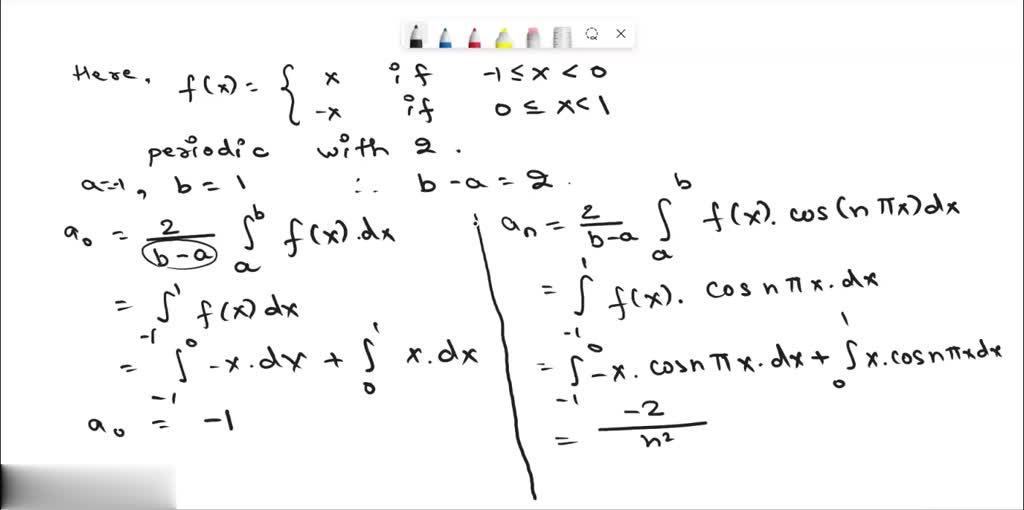 Here, f(x) = { x if -1 ≤ x < 0
-x if 0 ≤ x < 1
periodic with 2.
a=-1, b = 1 ∴ b-a = 2.
a₀ = 2/(b-a) ∫ₐᵇ f(x).dx
= ∫₋₁¹ f(x) dx
= ∫₋₁⁰ -x.dx + ∫₀¹ x.dx
a₀ = -1
aₙ = 2/(b-a) ∫ₐᵇ f(x). cos(nπx)dx
= ∫₋₁¹ f(x). cosnπx.dx
= ∫₋₁⁰ -x. cosnπx.dx + ∫₀¹ x.cosnπxdx
= -2/n²